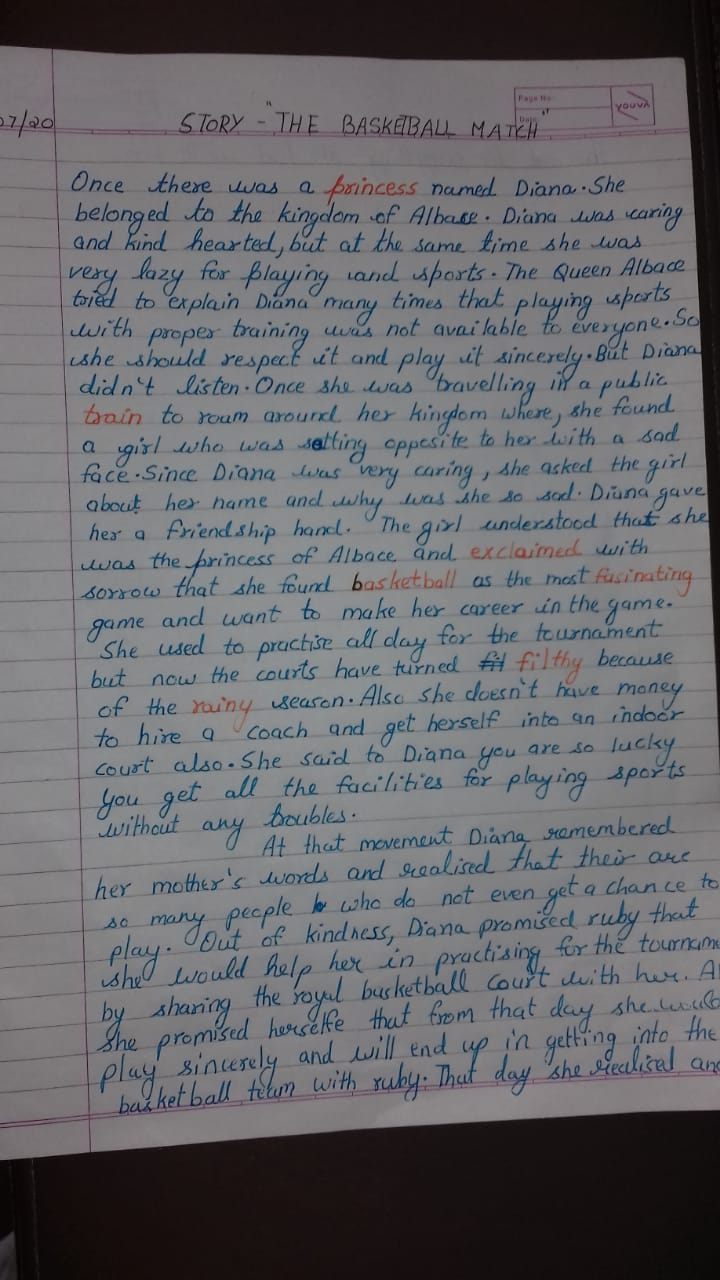 07/20
Page No.
Date
YOUVA
STORY - "THE BASKETBALL MATCH"
Once there was a princess named Diana. She
belonged to the kingdom of Albace. Diana was caring
and kind hearted, but at the same time she was
very lazy for playing and sports. The Queen Albace
tried to explain Diana many times that playing sports
with proper training was not available to everyone. So
she should respect it and play it sincerely. But Diana
didn't listen. Once she was travelling in a public
train to roam around her kingdom where, she found
a girl who was setting opposite to her with a sad
face. Since Diana was very caring, she asked the girl
about her name and why was she so sad. Diana gave
her a friendship hand. The girl understood that she
was the princess of Albace and exclaimed with
sorrow that she found basketball as the most fasinating
game and want to make her career in the game.
She used to practise all day for the tournament
but now the courts have turned filthy because
of the rainy season. Also she doesn't have money
to hire a coach and get herself into an indoor
court also. She said to Diana you are so lucky
you get all the facilities for playing sports
without any troubles.
At that movement Diana remembered
her mother's words and realised that their are
so many people who do not even get a chance to
play. Out of kindness, Diana promised ruby that
she would help her in practising for the tourname
by sharing the royal basketball court with her. A
she promised herselfe that from that day she would
play sincerely and will end up in getting into the
basketball team with ruby. That day she realised an